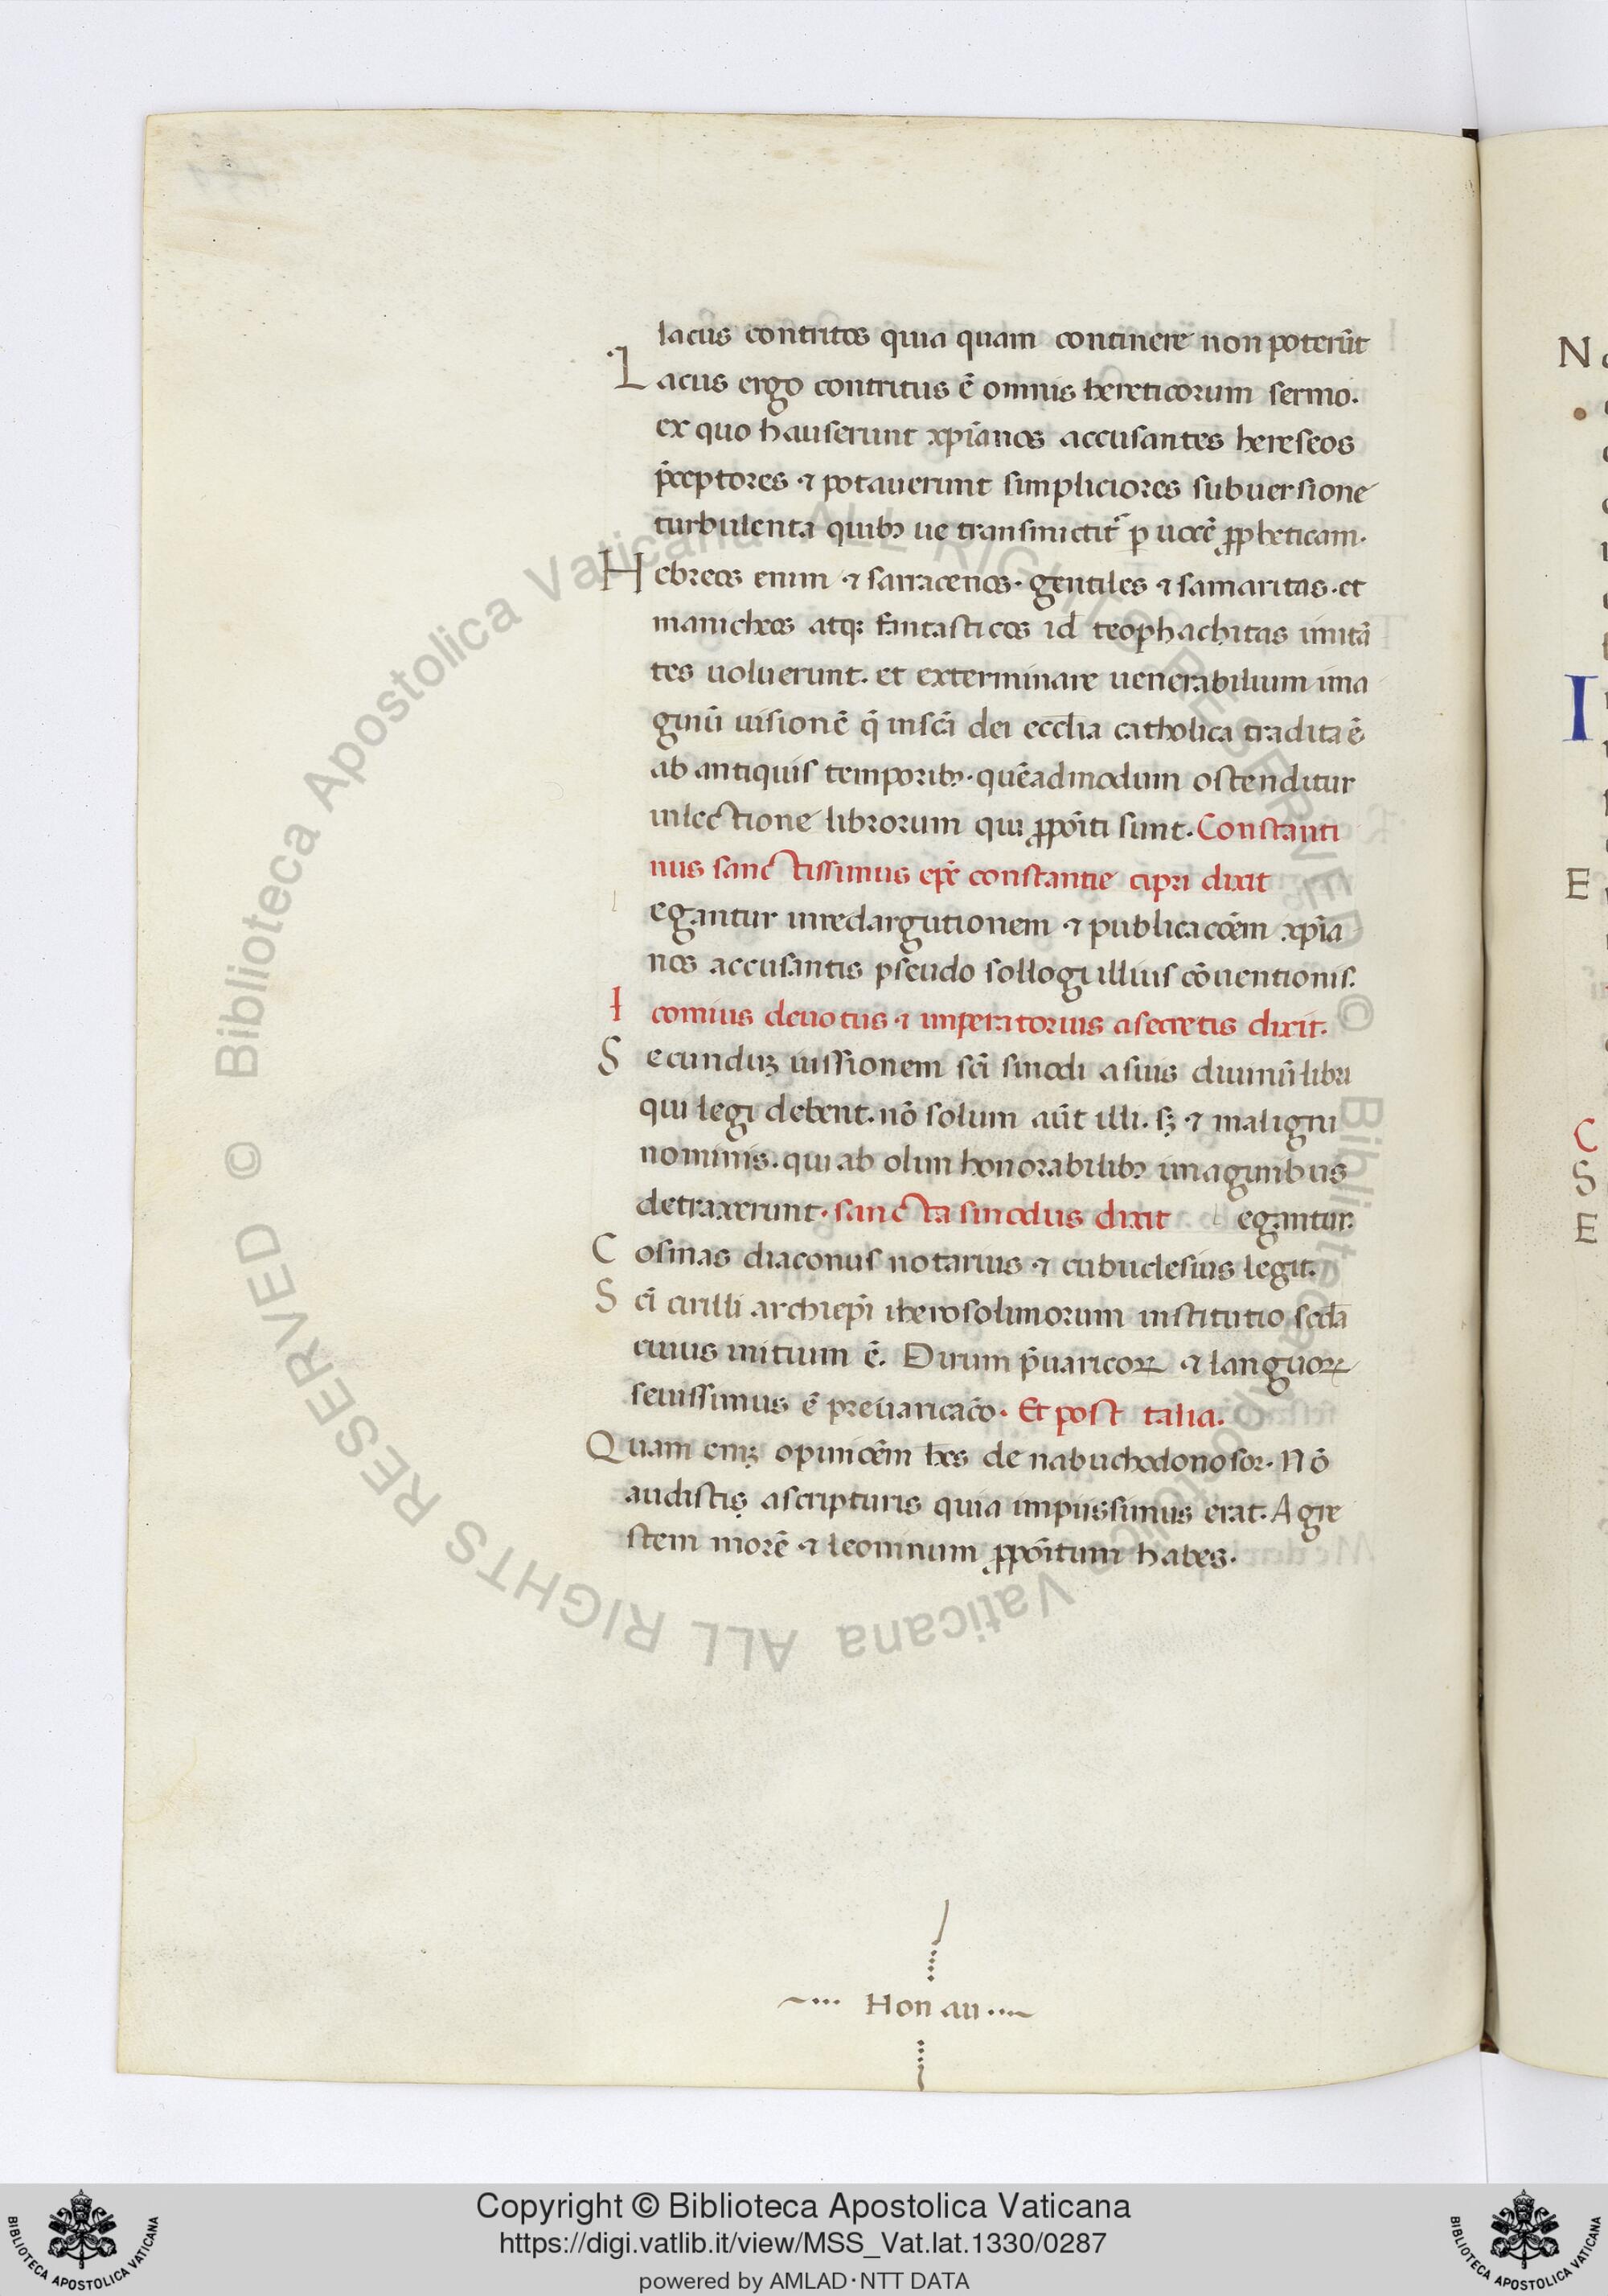 lacus contritos quia quam continere non poterūt
Lacus ergo contritus ē omnis hereticorum sermo.
ex quo hauserunt xp̄ianos accusantes hereseos
p̄ceptores ⁊ potauerunt simpliciores subuersione
turbulenta quibꝫ ue transmictit᷑ ꝑ uocē ꝓpheticam.
Hebreos enim ⁊ sarracenos. gentiles ⁊ samaritas. et
manicheos atqꝫ fantasticos id̄ teophachitas imitā
tes uoluerunt. et exterminare uenerabilium ima
ginū uisionē q̄ in sc̄a dei eccl̄ia catholica tradita ē
ab antiquis temporibꝫ. quēadmodum ostenditur
in lectione librorum qui ꝓpōiti sunt. Constanti
nus sanctissimus ep̄c constantie cipri dixit
legantur in redargutionem ⁊ publicacōem xp̄ia
nos accusantis pseudo sollogi illius cōuentionis.
I comius deuotus ⁊ imperatorius a secretis dixit.
Secunduꝫ iussionem sc̄i sinodi a suis diuinū libri
qui legi debent. nō solum aūt illi. sꝫ ⁊ maligni
nominis. qui ab olim honorabilibꝫ imaginibus
detraxerunt. sancta sinodus dixit legantur.
Cosmas diaconus notarius ⁊ cubuclesius legit.
Sc̄i cirilli archiep̄i iherosolimorum institutio sc̄da
cuius initium ē. Dirum p̄uaricoꝝ ⁊ languoꝝ
seuissimus ē preuaricac̄o. Et post talia.
Quam eniꝫ opiniōem hēs de nabuchodonosor. Nō
audistis a scripturis quia impiissimus erat. Agre
stem morē ⁊ leoninum ꝓpōitum habes.
Hon au
N
I
E
C
S
E
Copyright © Biblioteca Apostolica Vaticana
https://digi.vatlib.it/view/MSS_Vat.lat.1330/0287
powered by AMLAD·NTT DATA
BIBLIOTECA APOSTOLICA VATICANA
BIBLIOTECA APOSTOLICA VATICANA
© Biblioteca Apostolica Vaticana ALL RIGHTS RESERVED © Biblioteca Apostolica Vaticana ALL RIGHTS RESERVED